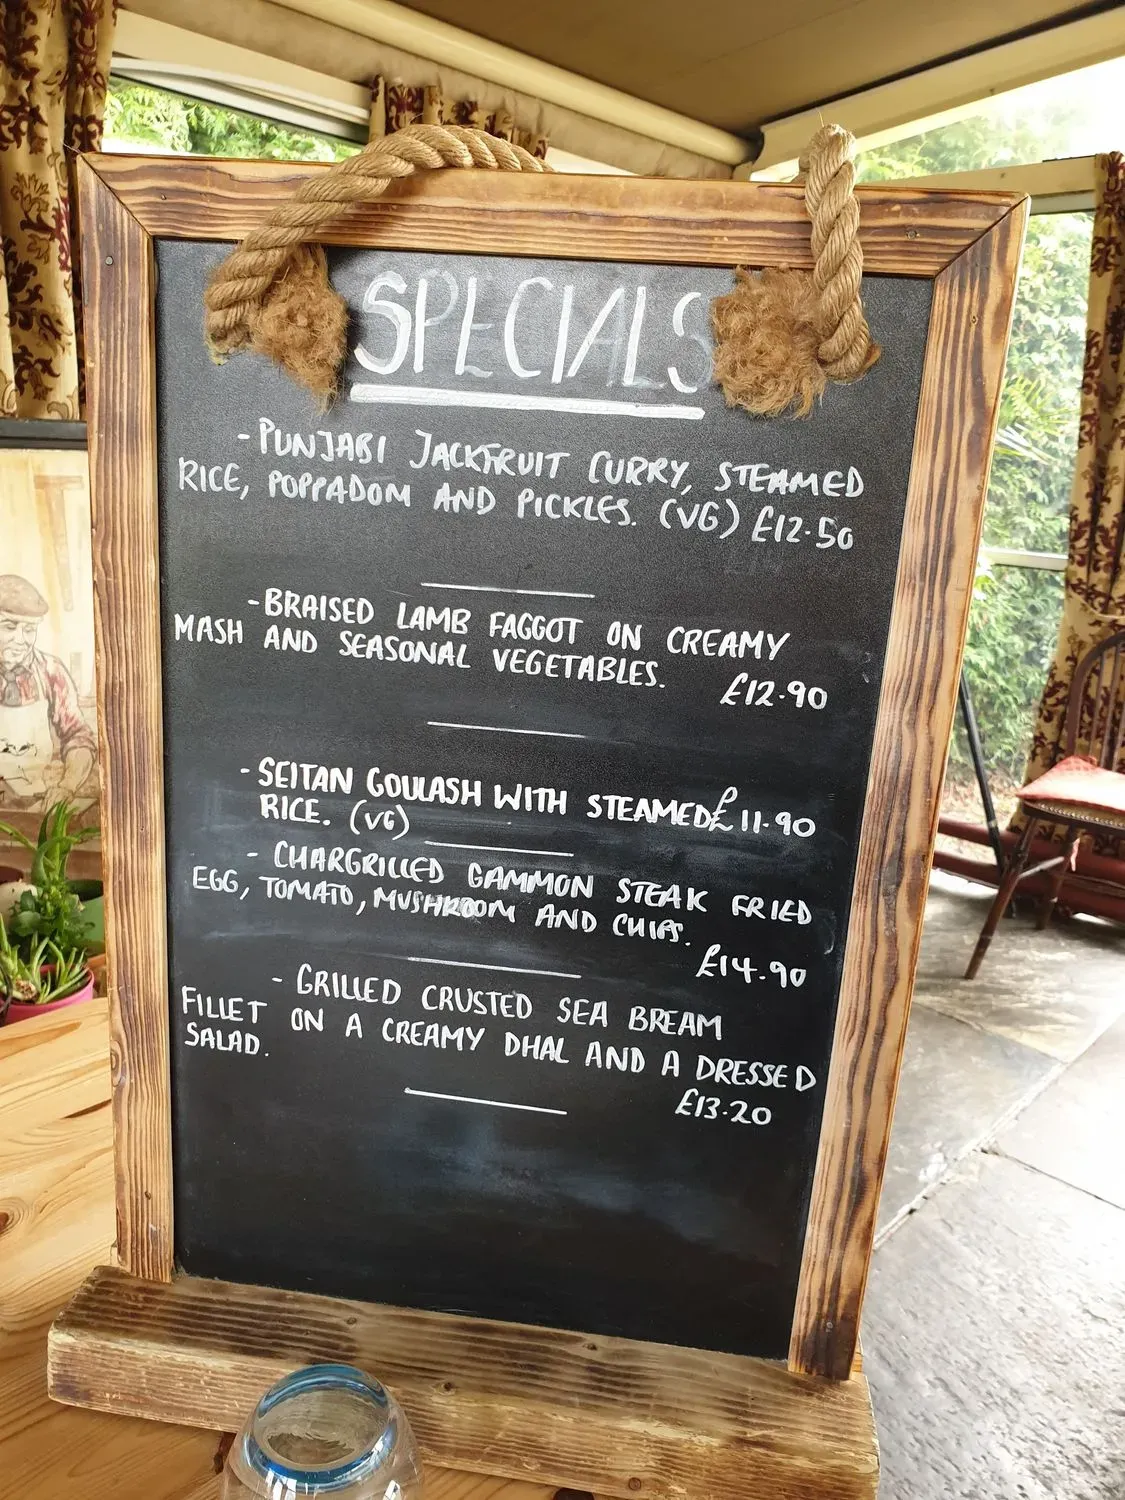 SPECIALS
- PUNJABI JACKFRUIT CURRY, STEAMED
RICE, POPPADOM AND PICKLES. (VG) £12.50
- BRAISED LAMB FAGGOT ON CREAMY
MASH AND SEASONAL VEGETABLES.
£12.90
- SEITAN GOULASH WITH STEAMED £11.90
RICE. (VG)
- CHARGRILLED GAMMON STEAK FRIED
EGG, TOMATO, MUSHROOM AND CHIPS.
£14.90
- GRILLED CRUSTED SEA BREAM
FILLET ON A CREAMY DHAL AND A DRESSED
SALAD.
£13.20